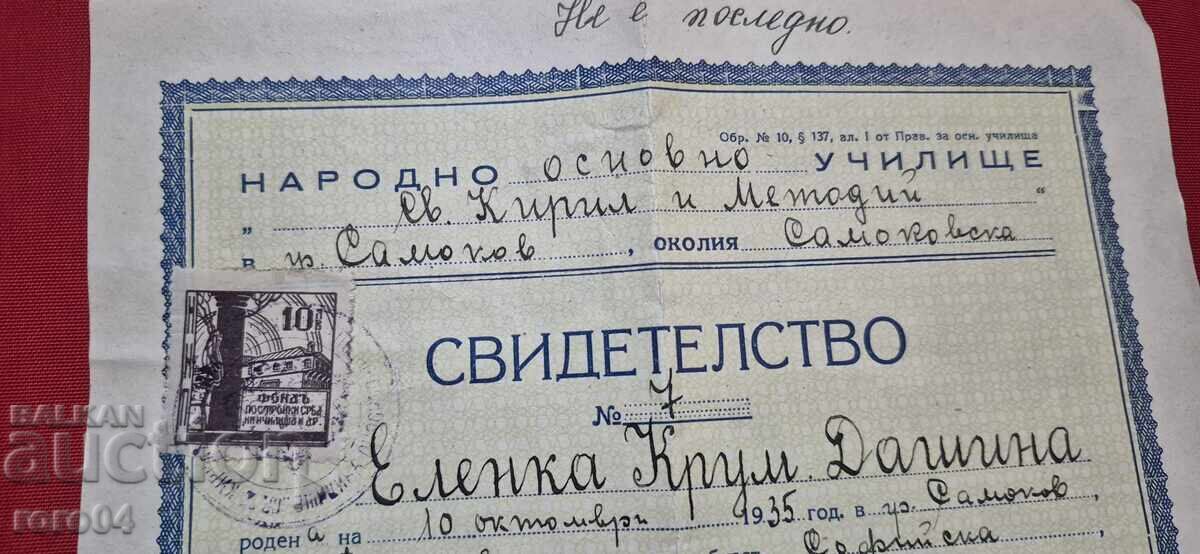 Не е последно.
Обр. № 10, § 137, ал. I от Прав. за осн. училища
НАРОДНО основно УЧИЛИЩЕ
„ Св. Кирил и Методий “
в гр. Самоков, околия Самоковска
СВИДЕТЕЛСТВО
№ 7
10
ФОНДЪ
ПОСТРОЙКИ СРѢД.
Еленка Крум. Дашина
родена на 10 октомври 1935 год. в гр. Самоков,
Софийска
BALKAN
auction
roro04